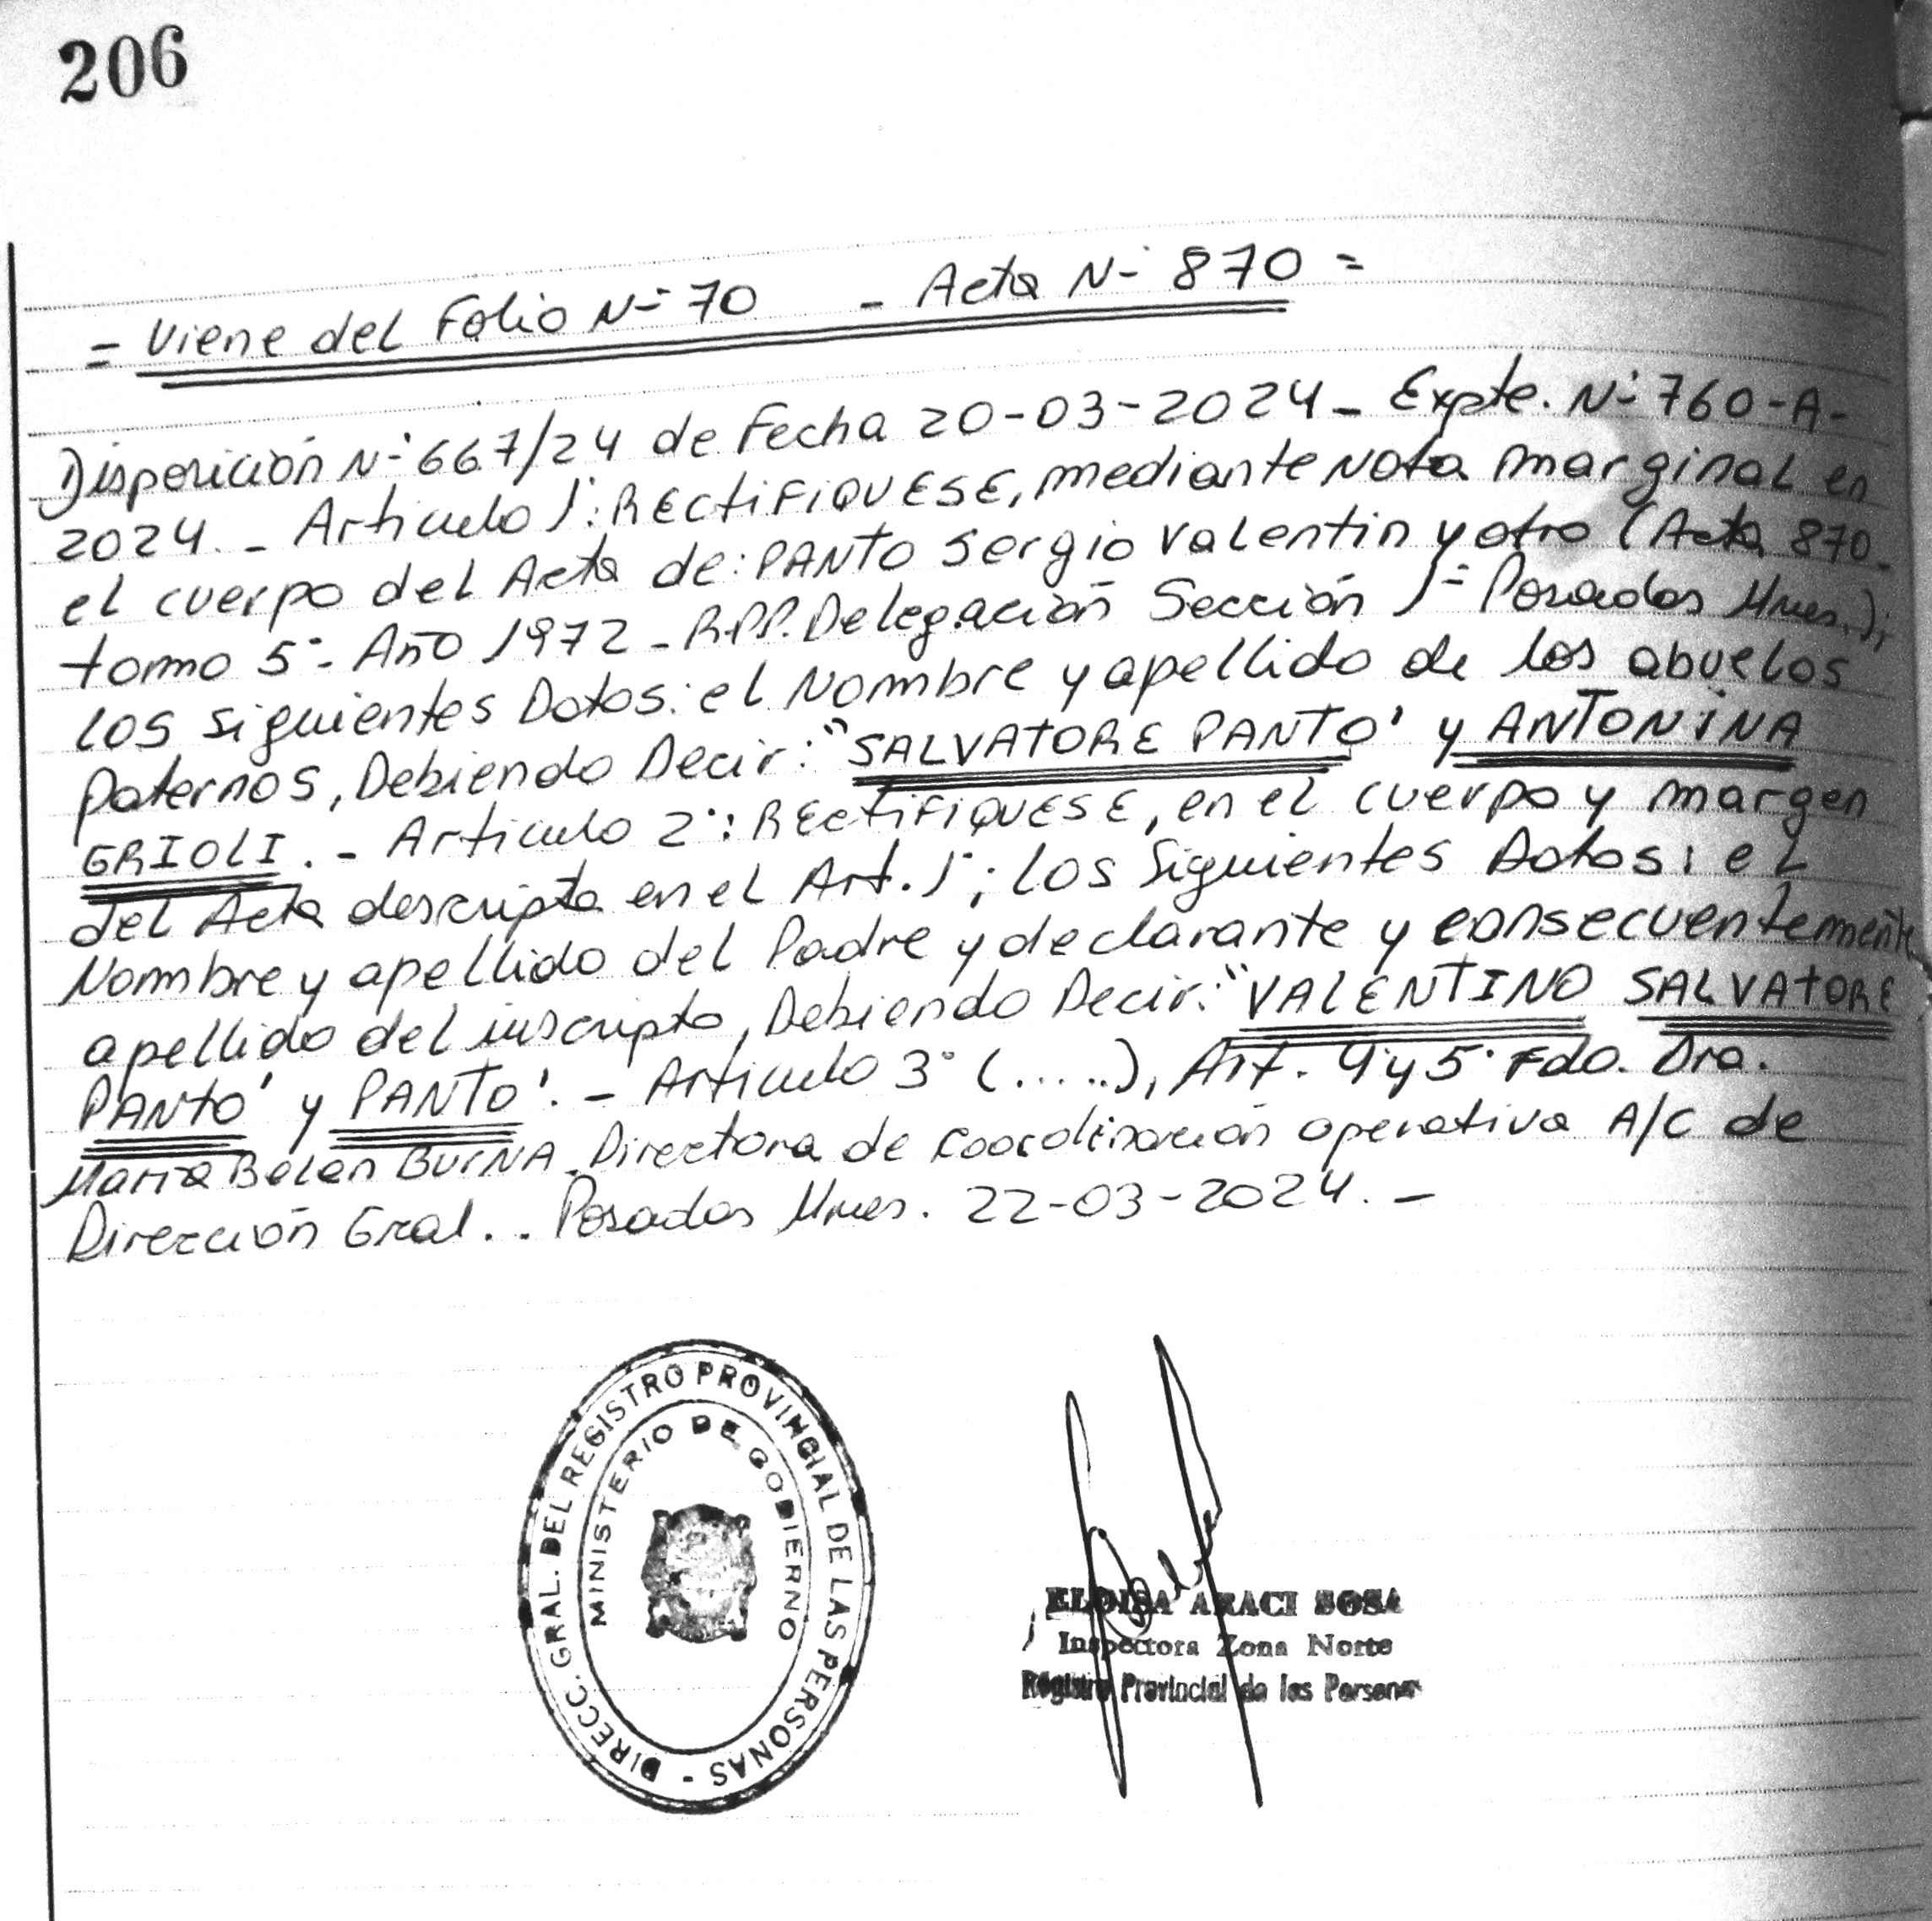 206
= Viene del Folio Nº 70 - Acta Nº 870 =
Disposición Nº 667/24 de Fecha 20-03-2024 - Expte. Nº 760-A-
2024. - Articulo 1º: RECTIFIQUESE, mediante Nota marginal en
el cuerpo del Acta de: PANTO Sergio Valentin y otro (Acta 870-
tomo 5º - Año 1972 - R.P.P. Delegación Sección 1º = Posadas Mnes.);
los siguientes Datos: el Nombre y apellido de los abuelos
Paternos, Debiendo Decir: "SALVATORE PANTO' y ANTONINA
GRIOLI. - Articulo 2º: RECTIFIQUESE, en el cuerpo y margen
del Acta descripta en el Art. 1º; los Siguientes Datos: el
Nombre y apellido del Padre y declarante y consecuentemente
apellido del inscripto, Debiendo Decir: "VALENTINO SALVATORE
PANTO' y PANTO'. - Articulo 3º (.....), Art. 4º y 5º Fdo. Dra.
Maria Belen BURNA. Directora de Coordinación operativa A/C de
Dirección Gral.. Posadas Mnes. 22-03-2024. -
DIRECC. GRAL. DEL REGISTRO PROVINCIAL DE LAS PERSONAS -
MINISTERIO DE GOBIERNO
ELOISA ARACI SOSA
Inspectora Zona Norte
Registro Provincial de las Personas